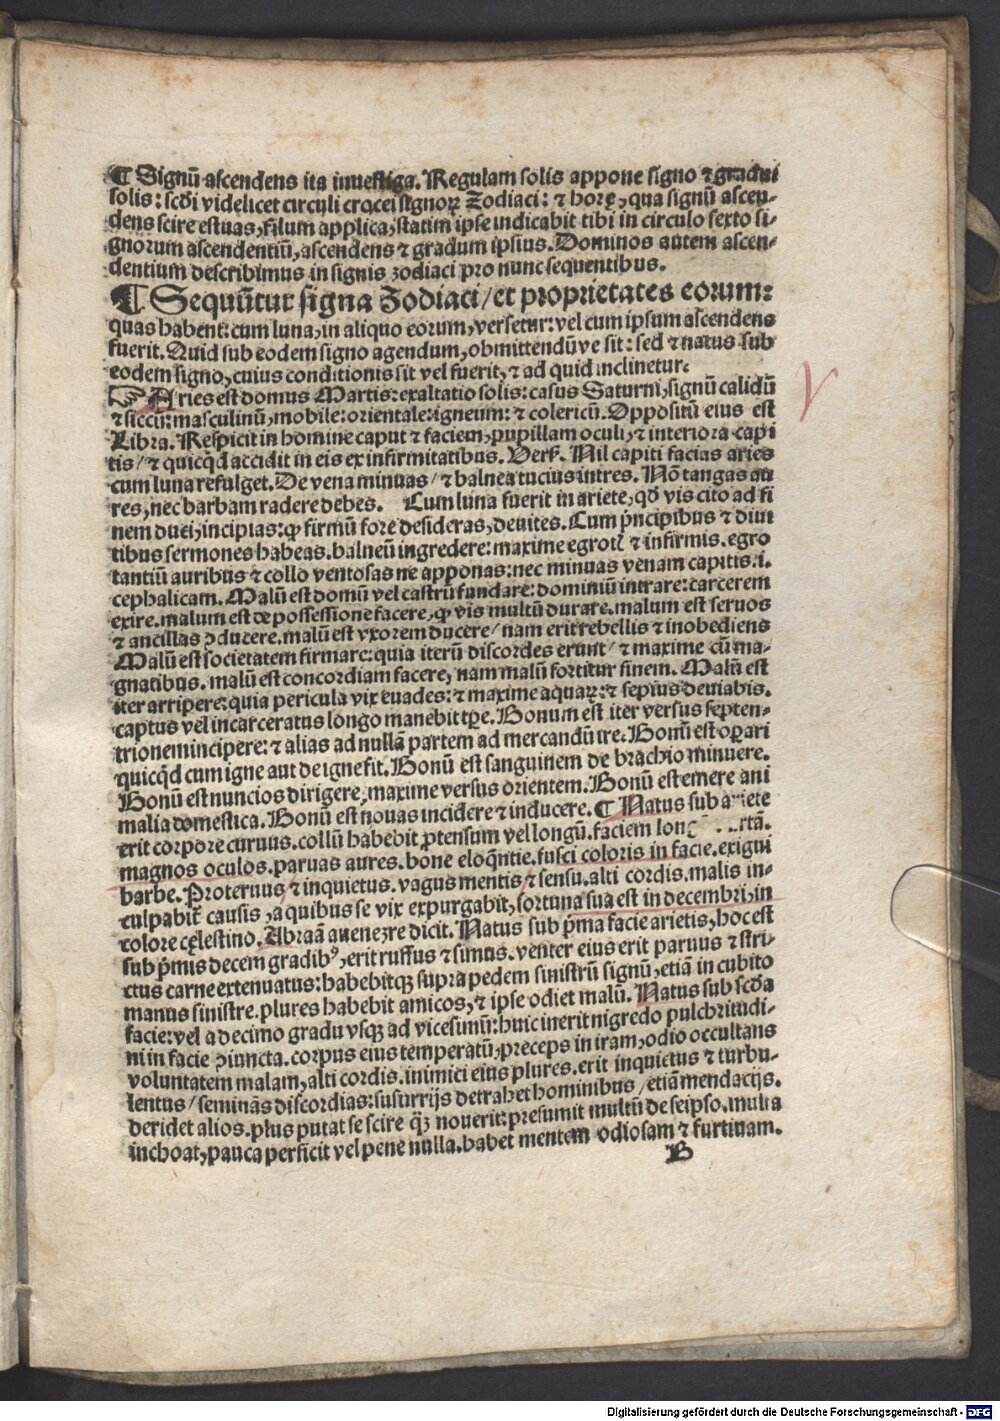 ¶ Signū ascendens ita inuestiga. Regulam solis appone signo ⁊ gradui
solis: scd̓i videlicet circuli crocei signoꝝ Zodiaci: ⁊ horę, qua signū ascen-
dens scire estuas, filum applica, statim ipse indicabit tibi in circulo sexto si-
gnorum ascendentiū, ascendens ⁊ gradum ipsius. Dominos autem ascen-
dentium describimus in signis zodiaci pro nunc sequentibus.
¶ Sequūtur signa Zodiaci / et proprietates eorum:
quas habent: cum luna, in aliquo eorum, versetur: vel cum ipsum ascendens
fuerit. Quid sub eodem signo agendum, obmittendūve sit: sed ⁊ natus sub
eodem signo, cuius conditionis sit vel fuerit, ⁊ ad quid inclinetur.
☞ Aries est domus Martis: exaltatio solis: casus Saturni, signū calidū
⁊ siccū: masculinū, mobile: orientale: igneum: ⁊ colericū. Oppositū eius est
Libra. Respicit in homine caput ⁊ faciem, pupillam oculi, ⁊ interiora capi
tis / ⁊ quicq̄d accidit in eis ex infirmitatibus. Verſ. Nil capiti facias aries
cum luna refulget. De vena minuas / ⁊ balnea tucius intres. Nō tangas au
res, nec barbam radere debes. Cum luna fuerit in ariete, qd̓ vis cito ad fi
nem duci, incipias: qđ firmū fore desideras, deuites. Cum p̄ncipibus ⁊ diui
tibus sermones habeas. balneū ingredere: maxime egroti ⁊ infirmis. egro
tantiū auribus ⁊ collo ventosas ne apponas: nec minuas venam capitis. i.
cephalicam. Malū est domū vel castrū fundare: dominiū intrare: carcerem
exire. malum est de possessione facere, qđ vis multū durare. malum est seruos
⁊ ancillas ꝯducere. malū est vxorem ducere / nam erit rebellis ⁊ inobediens
Malū est societatem firmare: quia iterū discordes erunt / ⁊ maxime cū ma-
gnatibus. malū est concordiam facere, nam malū fortitur finem. Malū est
iter arripere: quia pericula vix euades: ⁊ maxime aquaꝝ: ⁊ sepius deuiabis.
captus vel incarceratus longo manebit tꝑe. Bonum est iter versus septen-
trionem incipere: ⁊ alias ad nullā partem ad mercandū ire. Bonū est oꝑari
quicq̄d cum igne aut de igne fit. Bonū est sanguinem de brachio minuere.
Bonū est nuncios dirigere, maxime versus orientem. Bonū est emere ani
malia domestica. Bonū est nouas incidere ⁊ inducere. ¶ Natus sub ariete
erit corpore curuus. collū habebit ꝓtensum vel longū. faciem
magnos oculos. paruas aures. bone eloq̄ntie. fusci coloris in facie. exigui
barbe. Proteruus ⁊ inquietus. vagus mentis ⁊ sensu. alti cordis. malis in-
culpabit̄ causis, a quibus se vix expurgabit, fortuna sua est in decembri, in
colore cęlestino. Abraā auenezre dicit. Natus sub p̄ma facie arietis, hoc est
sub p̄mis decem gradibꝰ, erit ruffus ⁊ simus. venter eius erit paruus ⁊ stri-
ctus carne extenuatus: habebitqꝫ supra pedem sinistrū signū, etiā in cubito
manus sinistre. plures habebit amicos, ⁊ ipse odiet malū. Natus sub scd̓a
facie: vel a decimo gradu vsqꝫ ad vicesimū: huic inerit nigredo pulchritudi-
ni in facie ꝯiuncta. corpus eius temperatū, preceps in iram, odio occultans
voluntatem malam, alti cordis. inimici eius plures. erit inquietus ⁊ turbu-
lentus / seminās discordias: susurrijs detrahet hominibus / etiā mendacijs.
deridet alios. plus putat se scire q̄ꝫ nouerit: presumit multū de seipso. multa
inchoat, pauca perficit vel pene nulla. habet mentem odiosam ⁊ furtiuam.
B
V
Digitalisierung gefördert durch die Deutsche Forschungsgemeinschaft - DFG